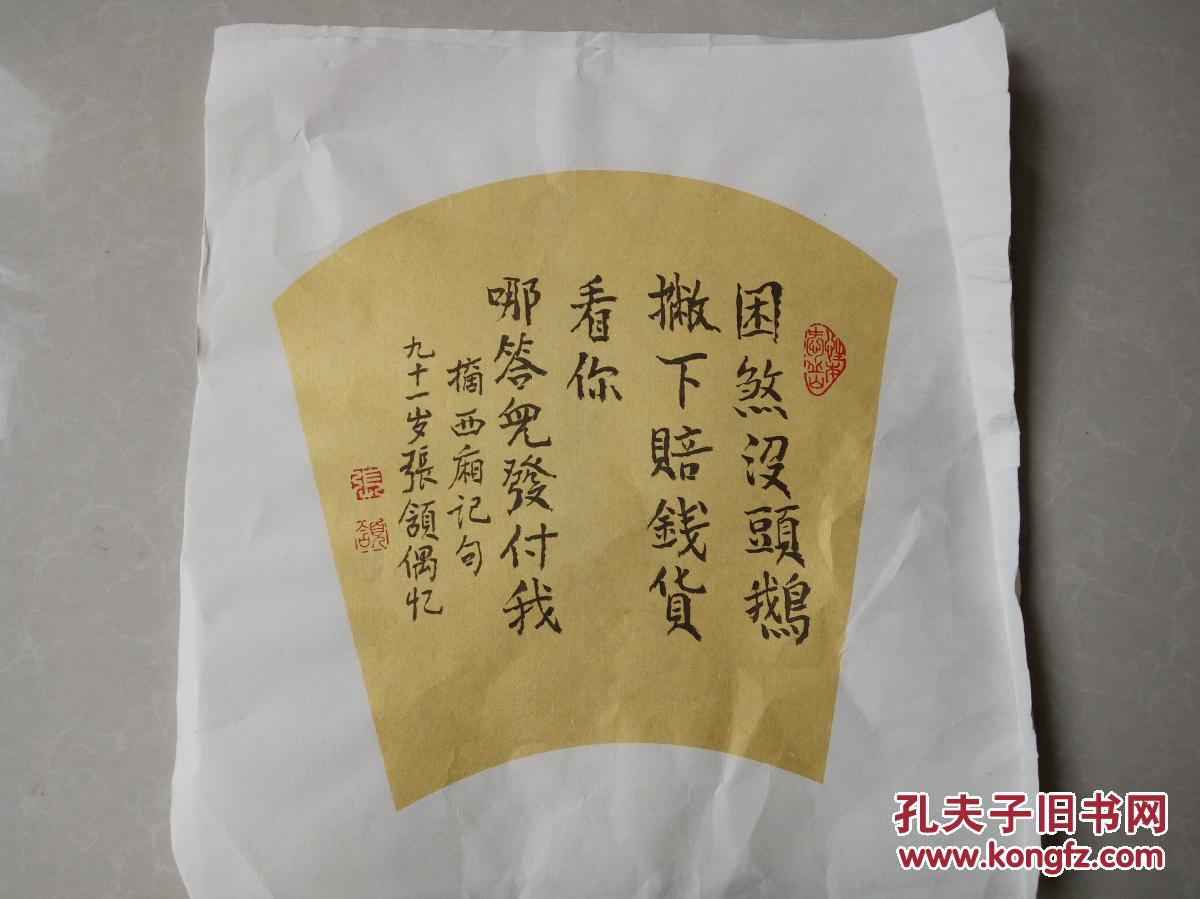 困煞没頭鵝
撇下賠錢貨
看你
哪答兒發付我
摘西廂记句
九十一岁張頷偶忆
張
頷
孔夫子旧书网
www.kongfz.com